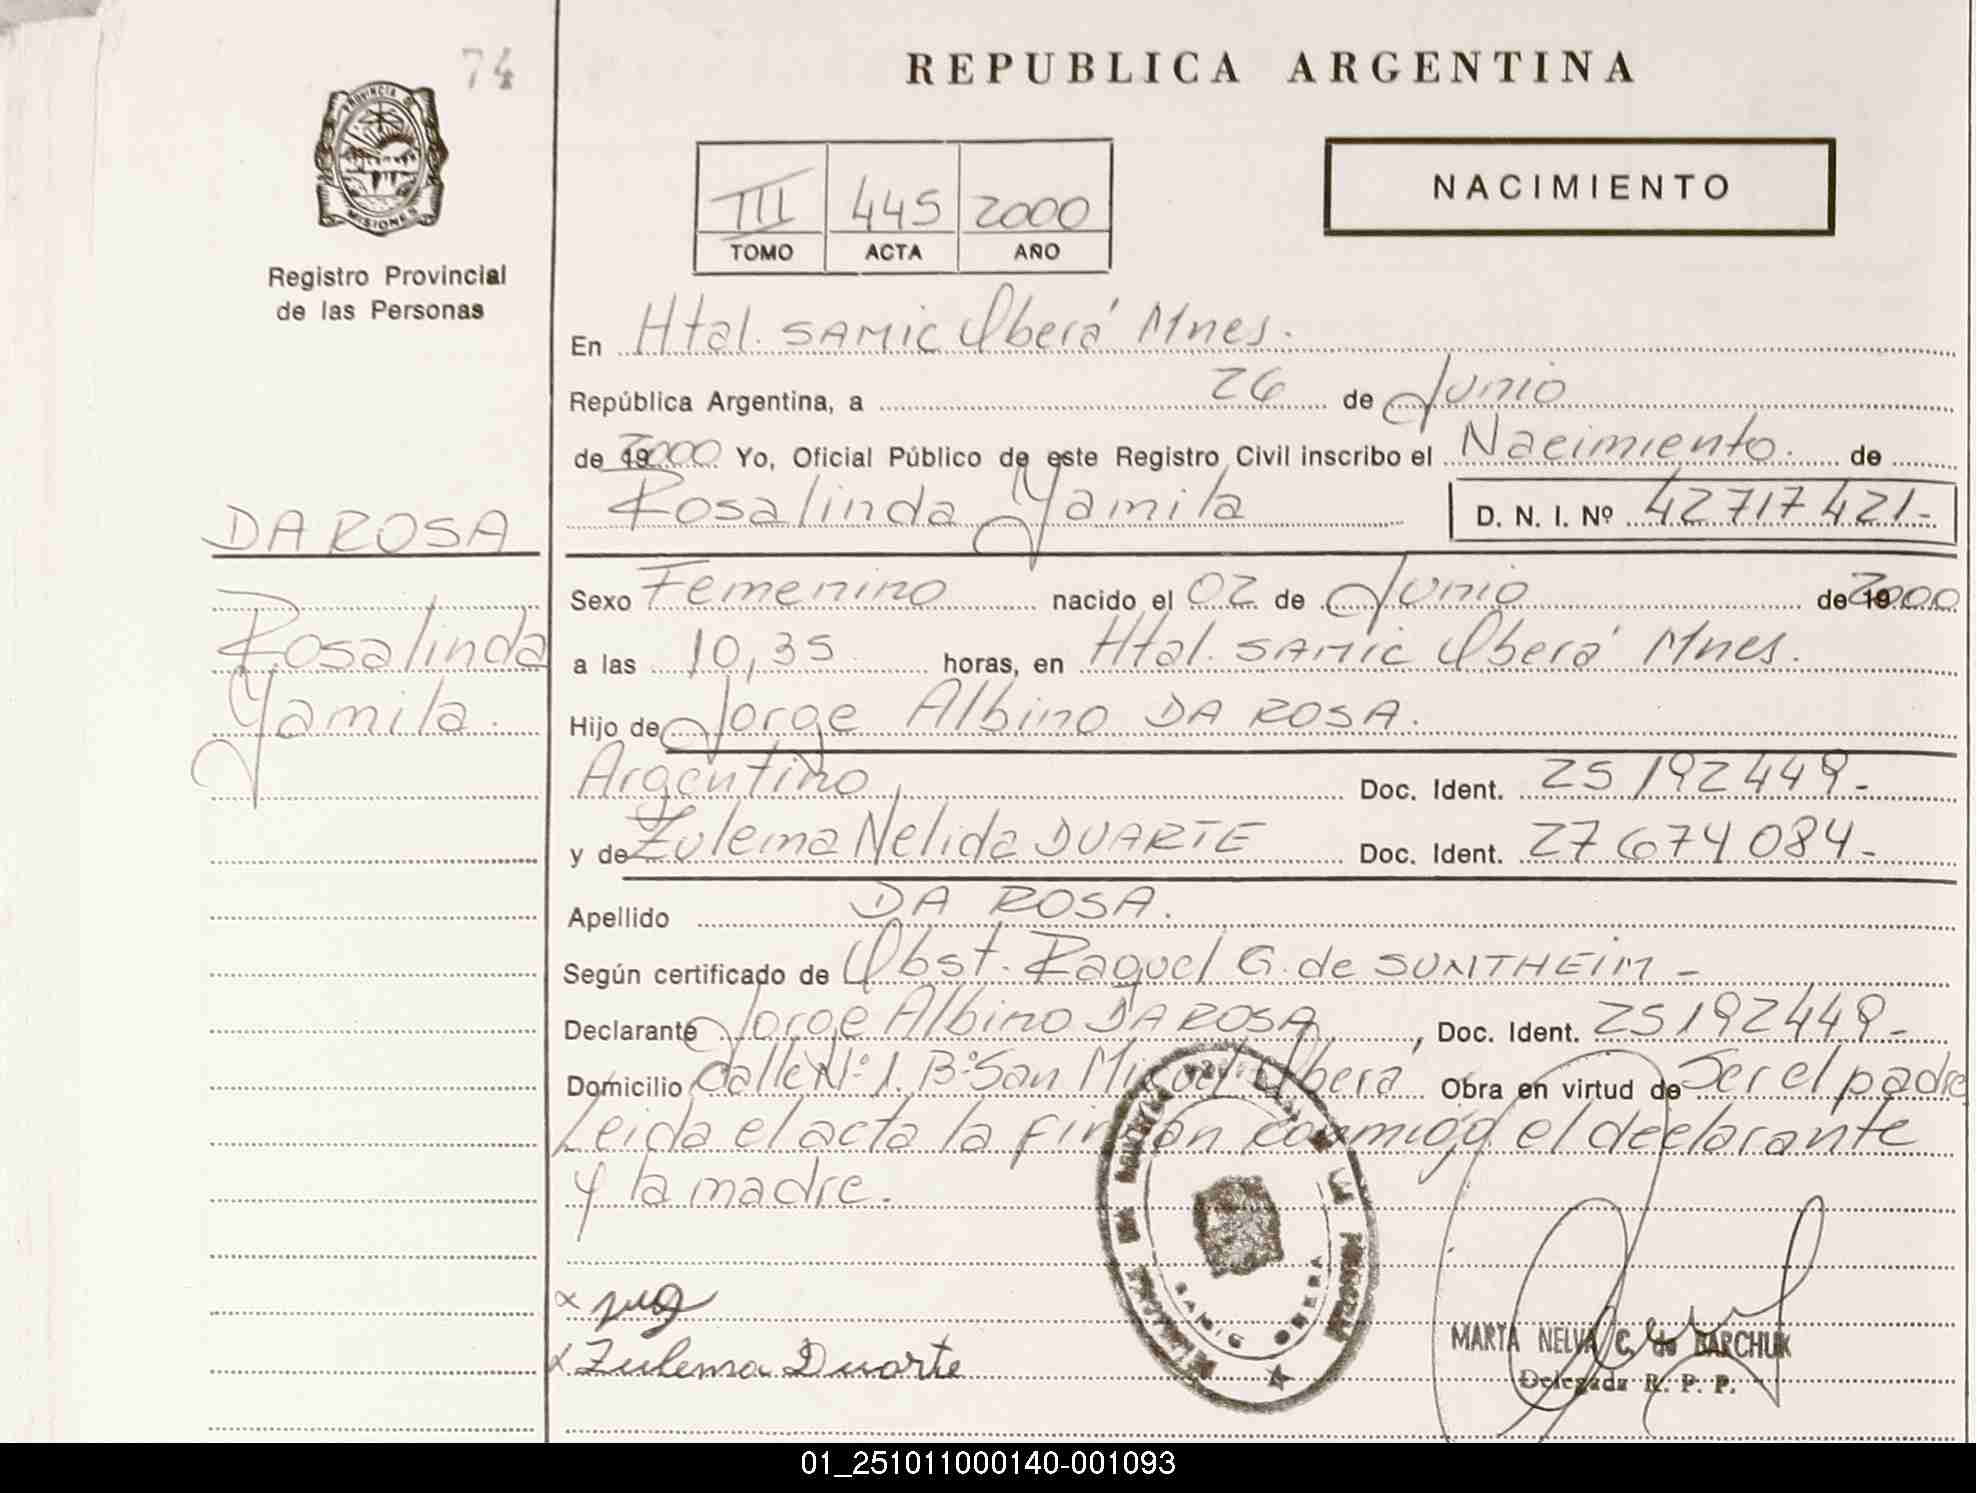 74
REPUBLICA ARGENTINA
PROVINCIA DE
MISIONES
Registro Provincial
de las Personas
NACIMIENTO
III 445 2000
TOMO ACTA AÑO
En Htal. SAMIC Oberá Mnes.
República Argentina, a 26 de Junio
de 19 2000 Yo, Oficial Público de este Registro Civil inscribo el Nacimiento. de
Rosalinda Yamila D. N. I. Nº 42717421-
DA ROSA
Rosalinda
Yamila.
Sexo Femenino nacido el 02 de Junio de 19 2000
a las 10,35 horas, en Htal. SAMIC Oberá Mnes.
Hijo de Jorge Albino DA ROSA.
Argentino Doc. Ident. 25192449-
y de Zulema Nelida DUARTE Doc. Ident. 27674084-
Apellido DA ROSA.
Según certificado de Obst. Raquel G. de SUNTHEIM-
Declarante Jorge Albino DA ROSA, Doc. Ident. 25192449-
Domicilio Calle Nº 1. Bº San Miguel Oberá Obra en virtud de Ser el padre
Leida el acta la firman conmigo el declarante
y la madre.
SAMIC OBERA
x Zulema Duarte
MARTA NELVA C. de BARCHUK
Delegada R. P. P.
01_251011000140-001093